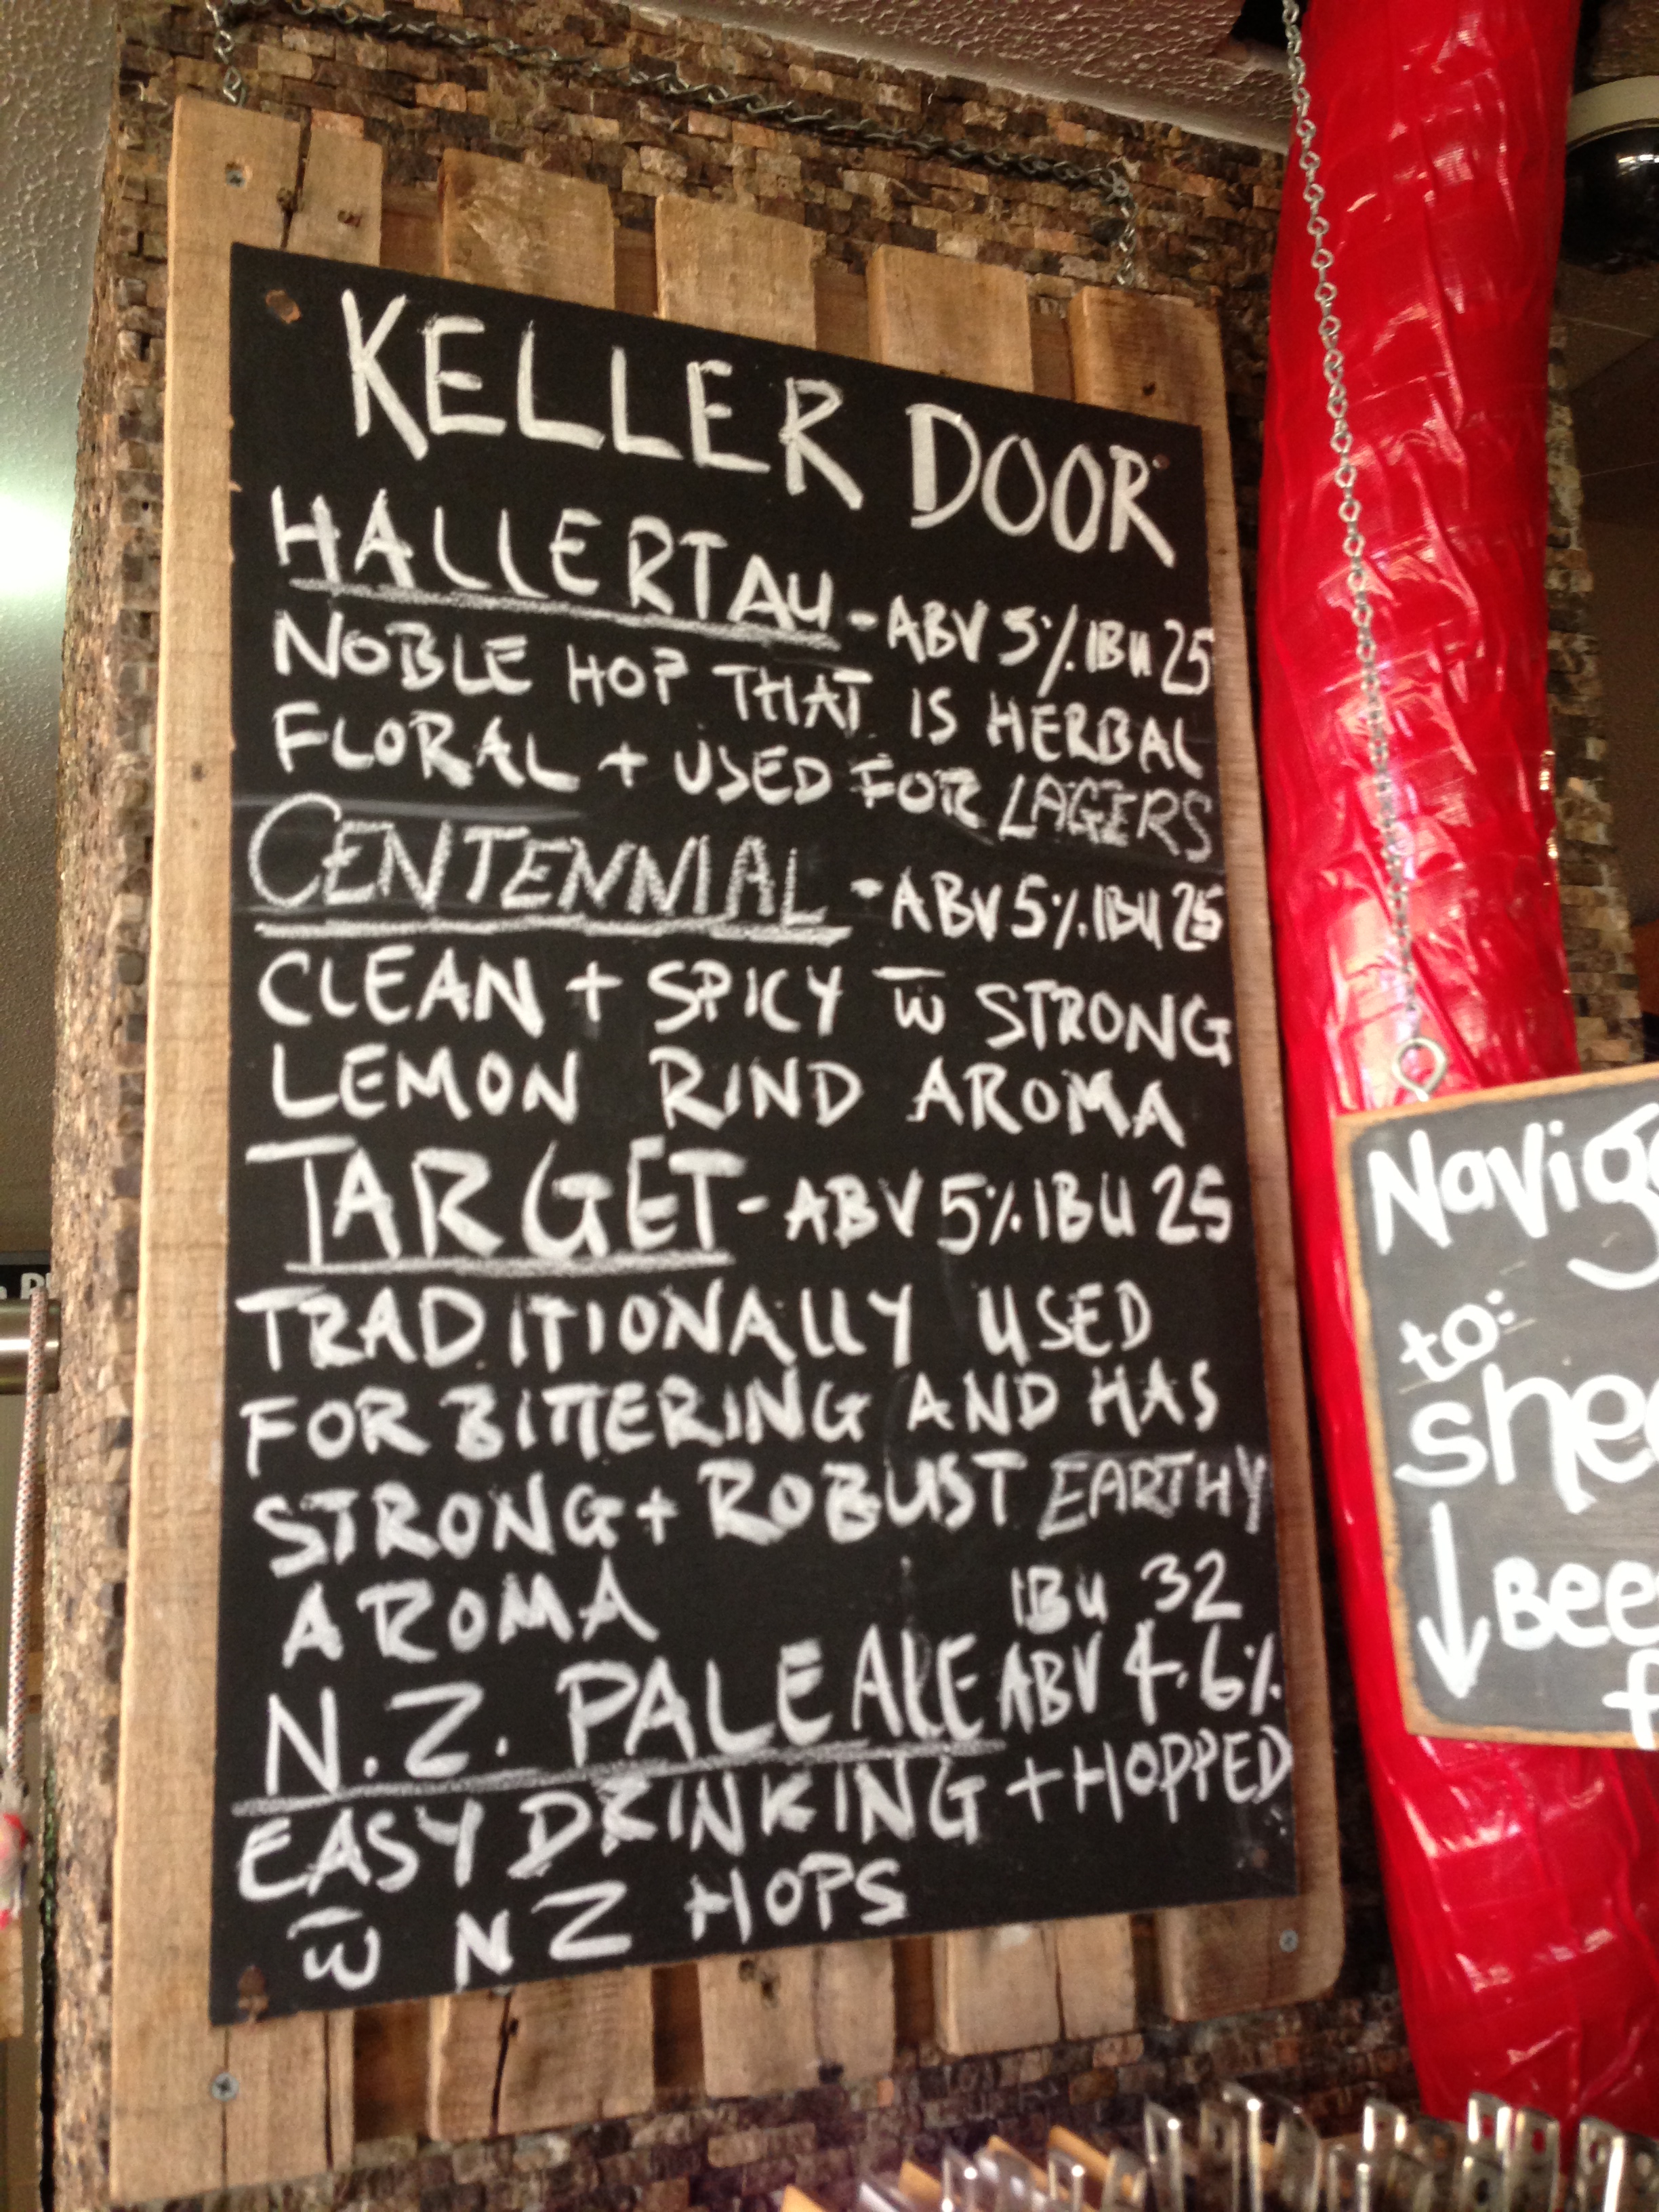 KELLER DOOR
HALLERTAU - ABV 5% IBU 25
NOBLE HOP THAT IS HERBAL
FLORAL + USED FOR LAGERS
CENTENNIAL - ABV 5% IBU 25
CLEAN + SPICY w̅ STRONG
LEMON RIND AROMA
TARGET - ABV 5% IBU 25
TRADITIONALLY USED
FOR BITTERING AND HAS
STRONG + ROBUST EARTHY
AROMA IBU 32
N.Z. PALE ALE ABV 4.6%
EASY DRINKING + HOPPED
w̅ NZ HOPS
to: